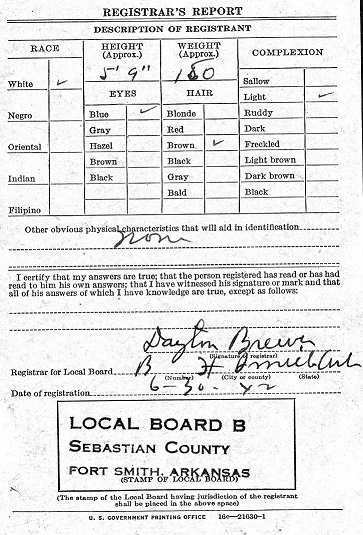 REGISTRAR'S REPORT
DESCRIPTION OF REGISTRANT
RACE
HEIGHT (Approx.)
WEIGHT (Approx.)
COMPLEXION
5' 9"
180
White ✓
EYES
HAIR
Sallow
Light ✓
Negro
Blue ✓
Blonde
Ruddy
Gray
Red
Dark
Oriental
Hazel
Brown ✓
Freckled
Brown
Black
Light brown
Indian
Black
Gray
Dark brown
Bald
Black
Filipino
Other obvious physical characteristics that will aid in identification
None
I certify that my answers are true; that the person registered has read or has had
read to him his own answers; that I have witnessed his signature or mark and that
all of his answers of which I have knowledge are true, except as follows:
Dayton
(Signature of registrar)
Registrar for Local Board B Ft Smith Ark
(Number) (City or county) (State)
Date of registration 6-30-42
LOCAL BOARD B
SEBASTIAN COUNTY
FORT SMITH, ARKANSAS
(STAMP OF LOCAL BOARD)
(The stamp of the Local Board having jurisdiction of the registrant
shall be placed in the above space)
U. S. GOVERNMENT PRINTING OFFICE 16c—21630-1